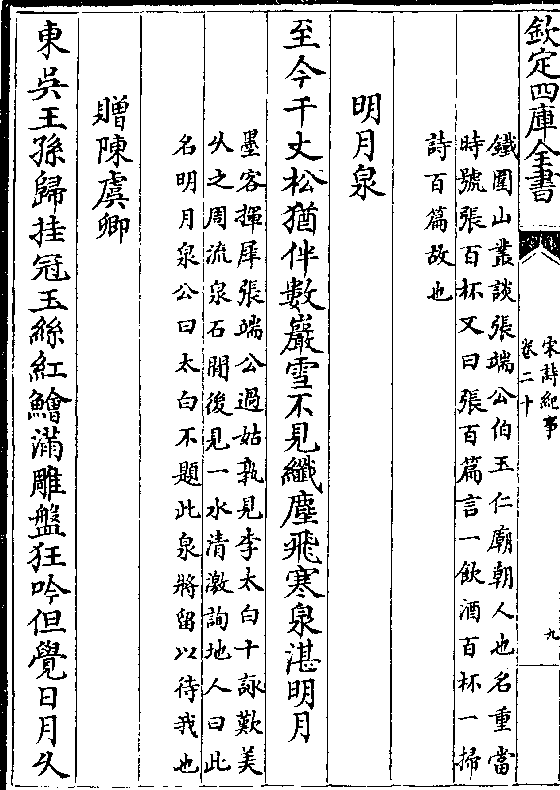 欽定四庫全書
宋詩紀事
卷二十
九
鐵圍山叢談張端公伯玉仁廟朝人也名重當
時號張百杯又曰張百篇言一飲酒百杯一掃
詩百篇故也
明月泉
至今千丈松猶伴數巖雪不見纖塵飛寒泉湛明月
墨客揮犀張端公過姑孰見李太白十詠歎美
乆之周流泉石間後見一水清澈詢地人曰此
名明月泉公曰太白不題此泉將留以待我也
贈陳虞卿
東吳王孫歸挂冠玉絲紅鱠滿雕盤狂吟但覺日月乆